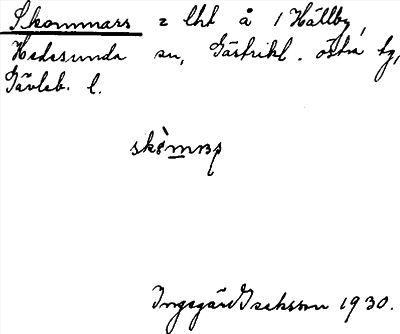 Skommars = lht å 1 Hällby,
Hedesunda sn, Gästrikl. östra tg,
Gävleb. l.
Ingegärd Isaksson 1930.